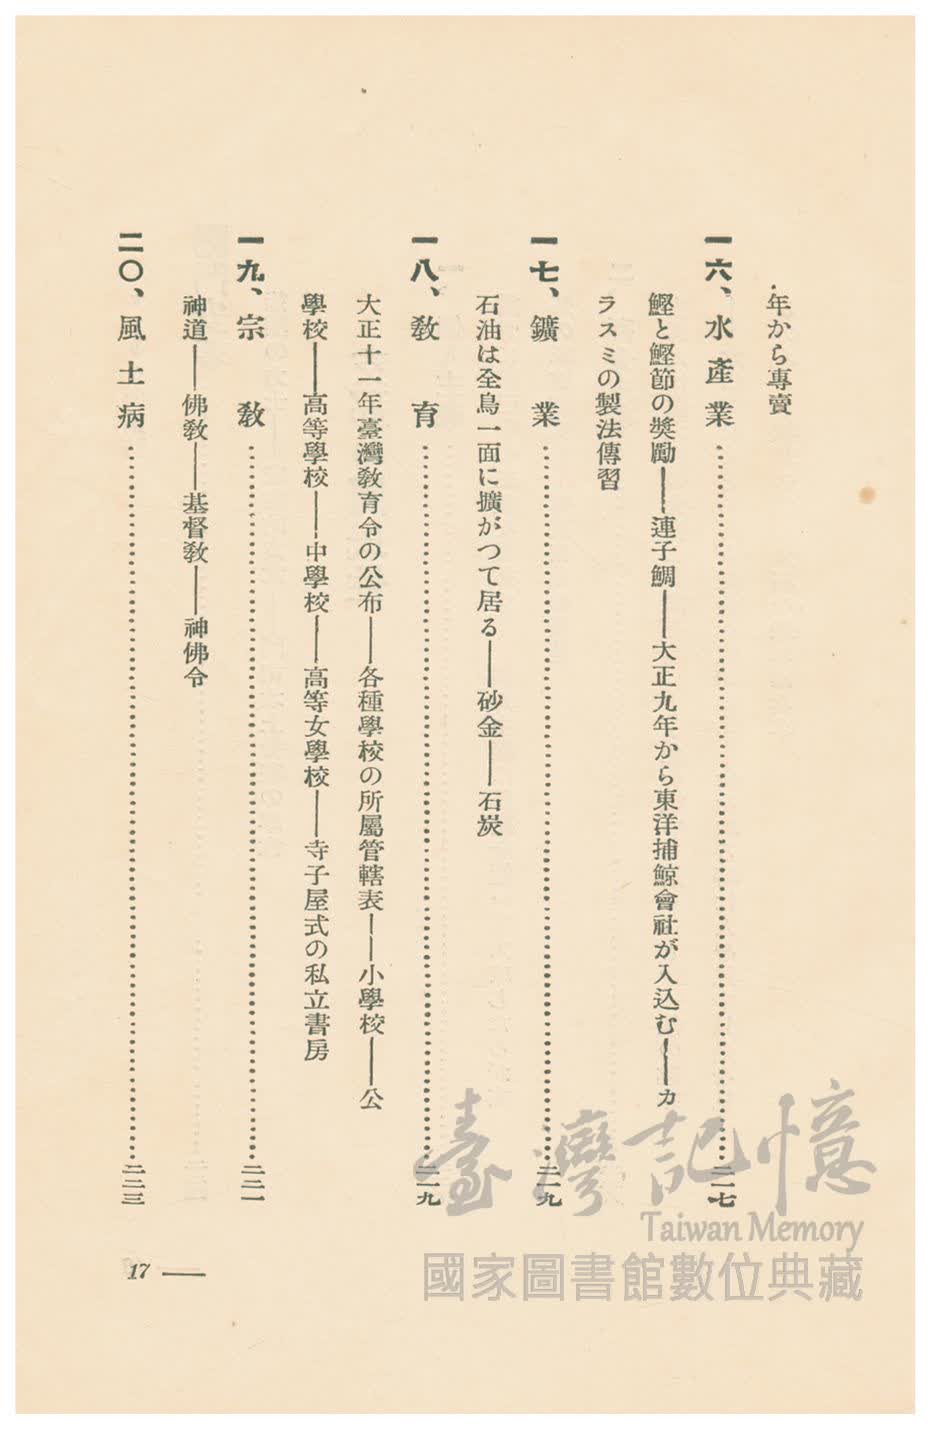 年から專賣
一六、水產業……二一七
鰹と鰹節の奬勵──連子鯛──大正九年から東洋捕鯨會社が入込む──カ
ラスミの製法傳習
一七、鑛業……二一九
石油は全島一面に擴がつて居る──砂金──石炭
一八、敎育……二一九
大正十一年臺灣敎育令の公布──各種學校の所屬管轄表──小學校──公
學校──高等學校──中學校──高等女學校──寺子屋式の私立書房
一九、宗敎……二二一
神道──佛敎──基督敎──神佛令
二〇、風土病……二二三
17 ──
臺灣記憶
Taiwan Memory
國家圖書館數位典藏